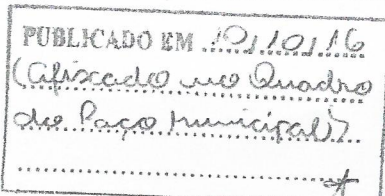 PUBLICADO EM 10/10/16
(afixado no Quadro
do Paço Municipal)